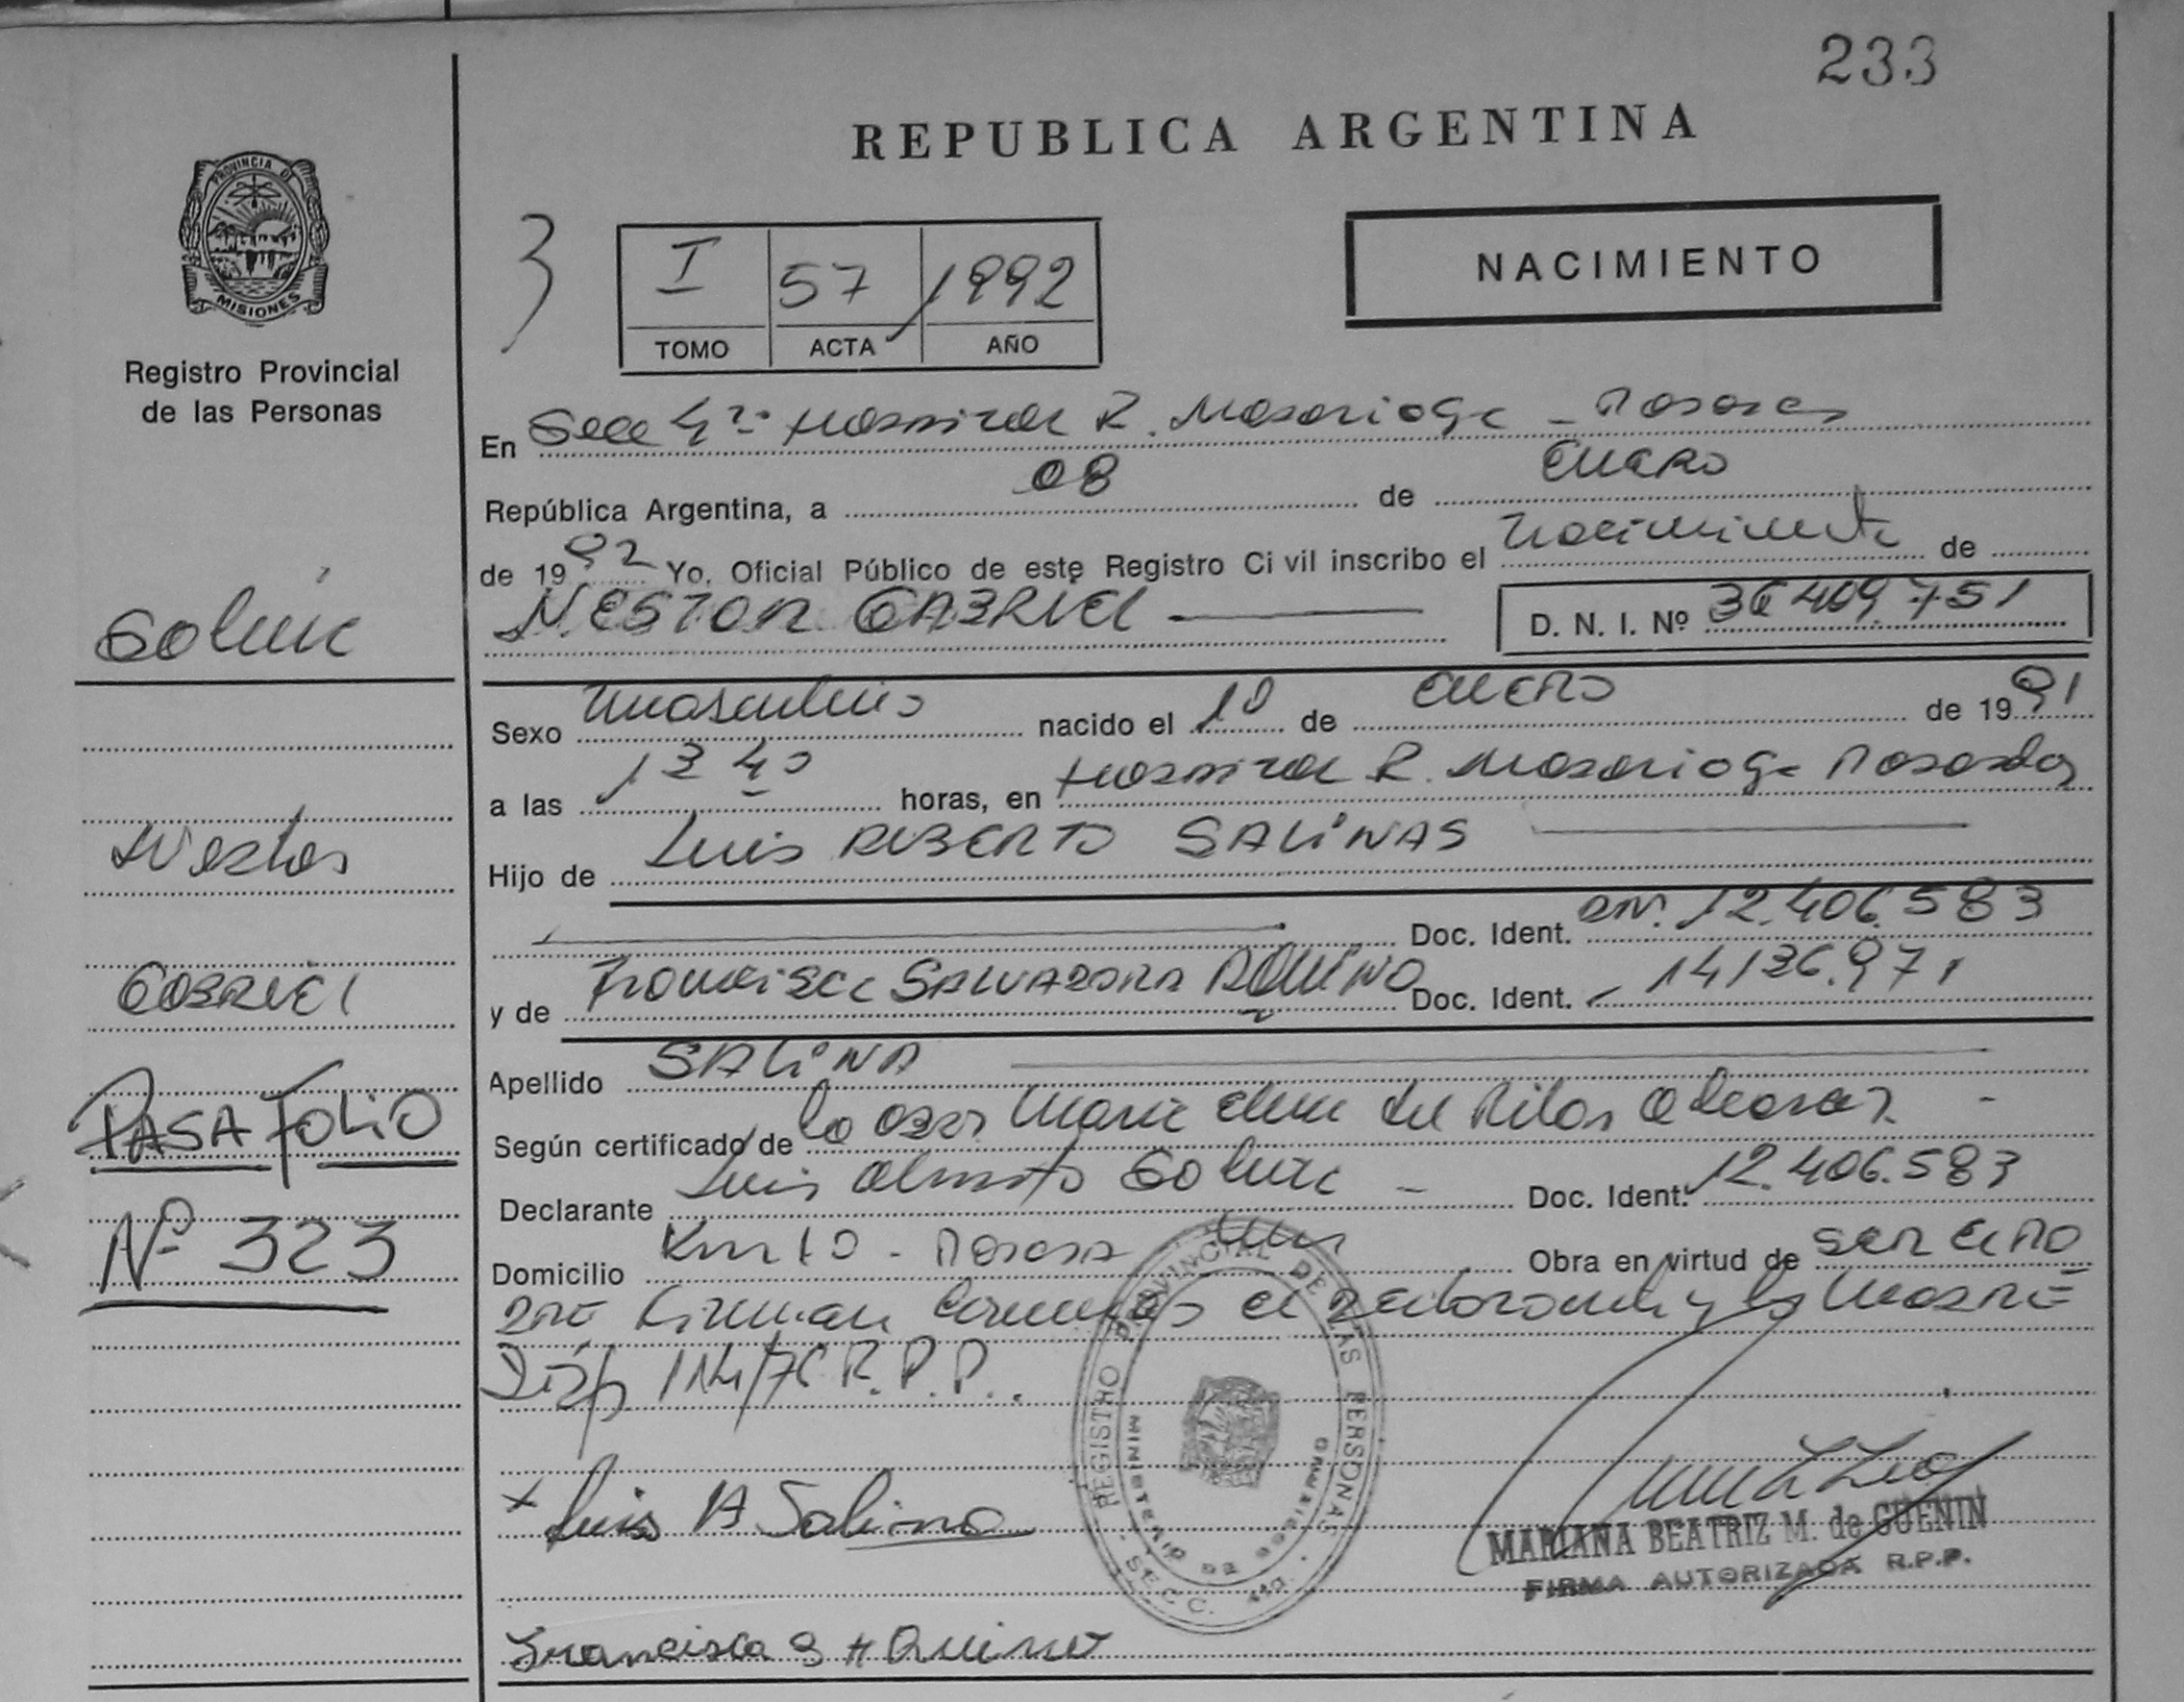 233
REPUBLICA ARGENTINA
PROVINCIA DE
MISIONES
Registro Provincial
de las Personas
3
I 57 1992
TOMO ACTA AÑO
NACIMIENTO
En Secc 4ta Hospital R. Madariaga - Posadas
República Argentina, a 08 de Enero
de 1992 Yo, Oficial Público de este Registro Civil inscribo el nacimiento de
NESTOR GABRIEL
D. N. I. Nº 36.409.751
Sexo masculino nacido el 10 de enero de 1991
a las 13 40 horas, en Hospital R. Madariaga Posadas
Hijo de Luis ALBERTO SALINAS
Doc. Ident. 12.406.583
y de Francisca SALVADORA AQUINO Doc. Ident. 14136.971
Apellido SALINA
Según certificado de la Obst Maria del
Declarante Luis Alberto Salina - Doc. Ident. 12.406.583
Domicilio Km 10 - Posadas Obra en virtud de ser cino
Firman el declarante y la madre
Disp 114/76 R.P.P..
x Luis A Salina
Francisca S Aquino
MARIANA BEATRIZ M. de GUENIN
FIRMA AUTORIZADA R.P.P.
REGISTRO PROVINCIAL DE LAS PERSONAS
MINISTERIO DE GOBIERNO
SECC.
Salina
Nestor
GABRIEL
PASA FOLIO
Nº 323